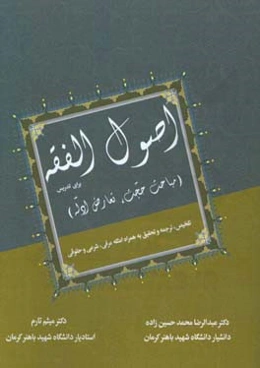 اصول الفقه
برای تدریس
(مباحث حجت، تعارض ادله)
تلخیص، ترجمه و تحقیق به همراه امثله عرفی، شرعی و حقوقی
دکتر عبدالرضا محمد حسین زاده
دانشیار دانشگاه شهید باهنر کرمان
دکتر میثم تارم
استادیار دانشگاه شهید باهنر کرمان